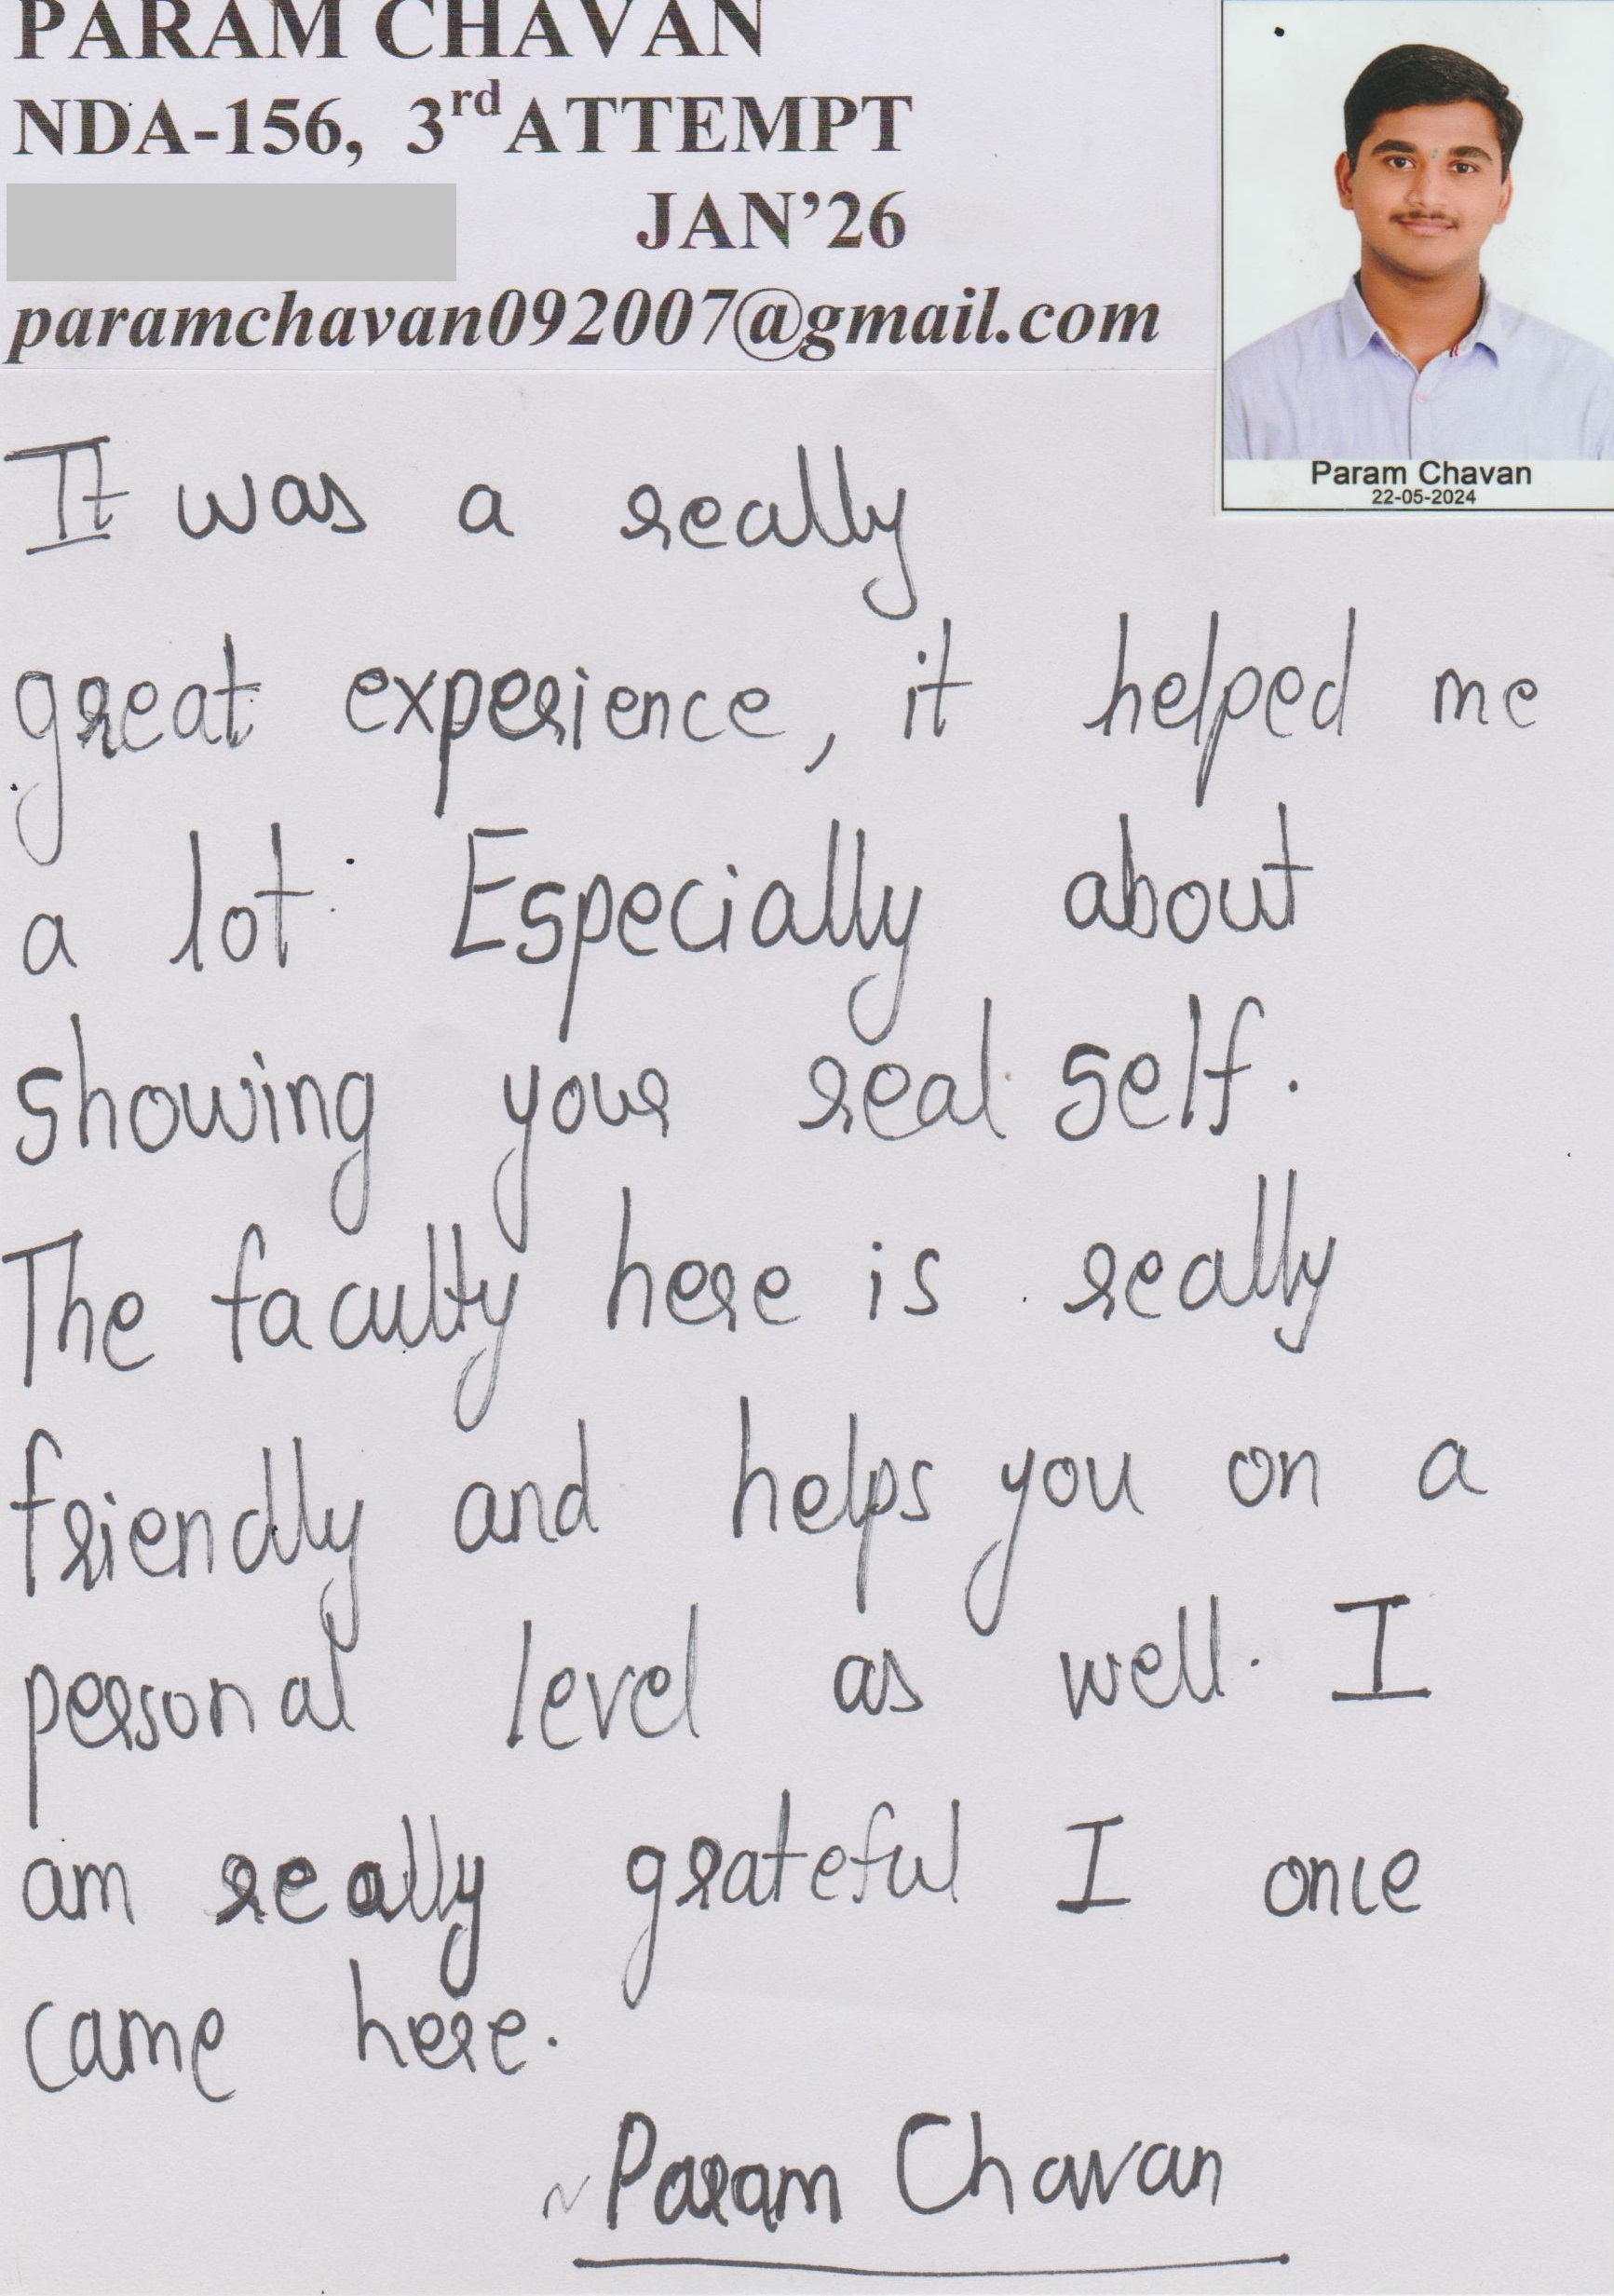 PARAM CHAVAN
NDA-156, 3rd ATTEMPT
JAN'26
paramchavan092007@gmail.com
Param Chavan
22-05-2024
It was a really
great experience, it helped me
a lot. Especially about
showing your real self.
The faculty here is really
friendly and helps you on a
personal level as well. I
am really grateful I once
came here.
~ Param Chavan